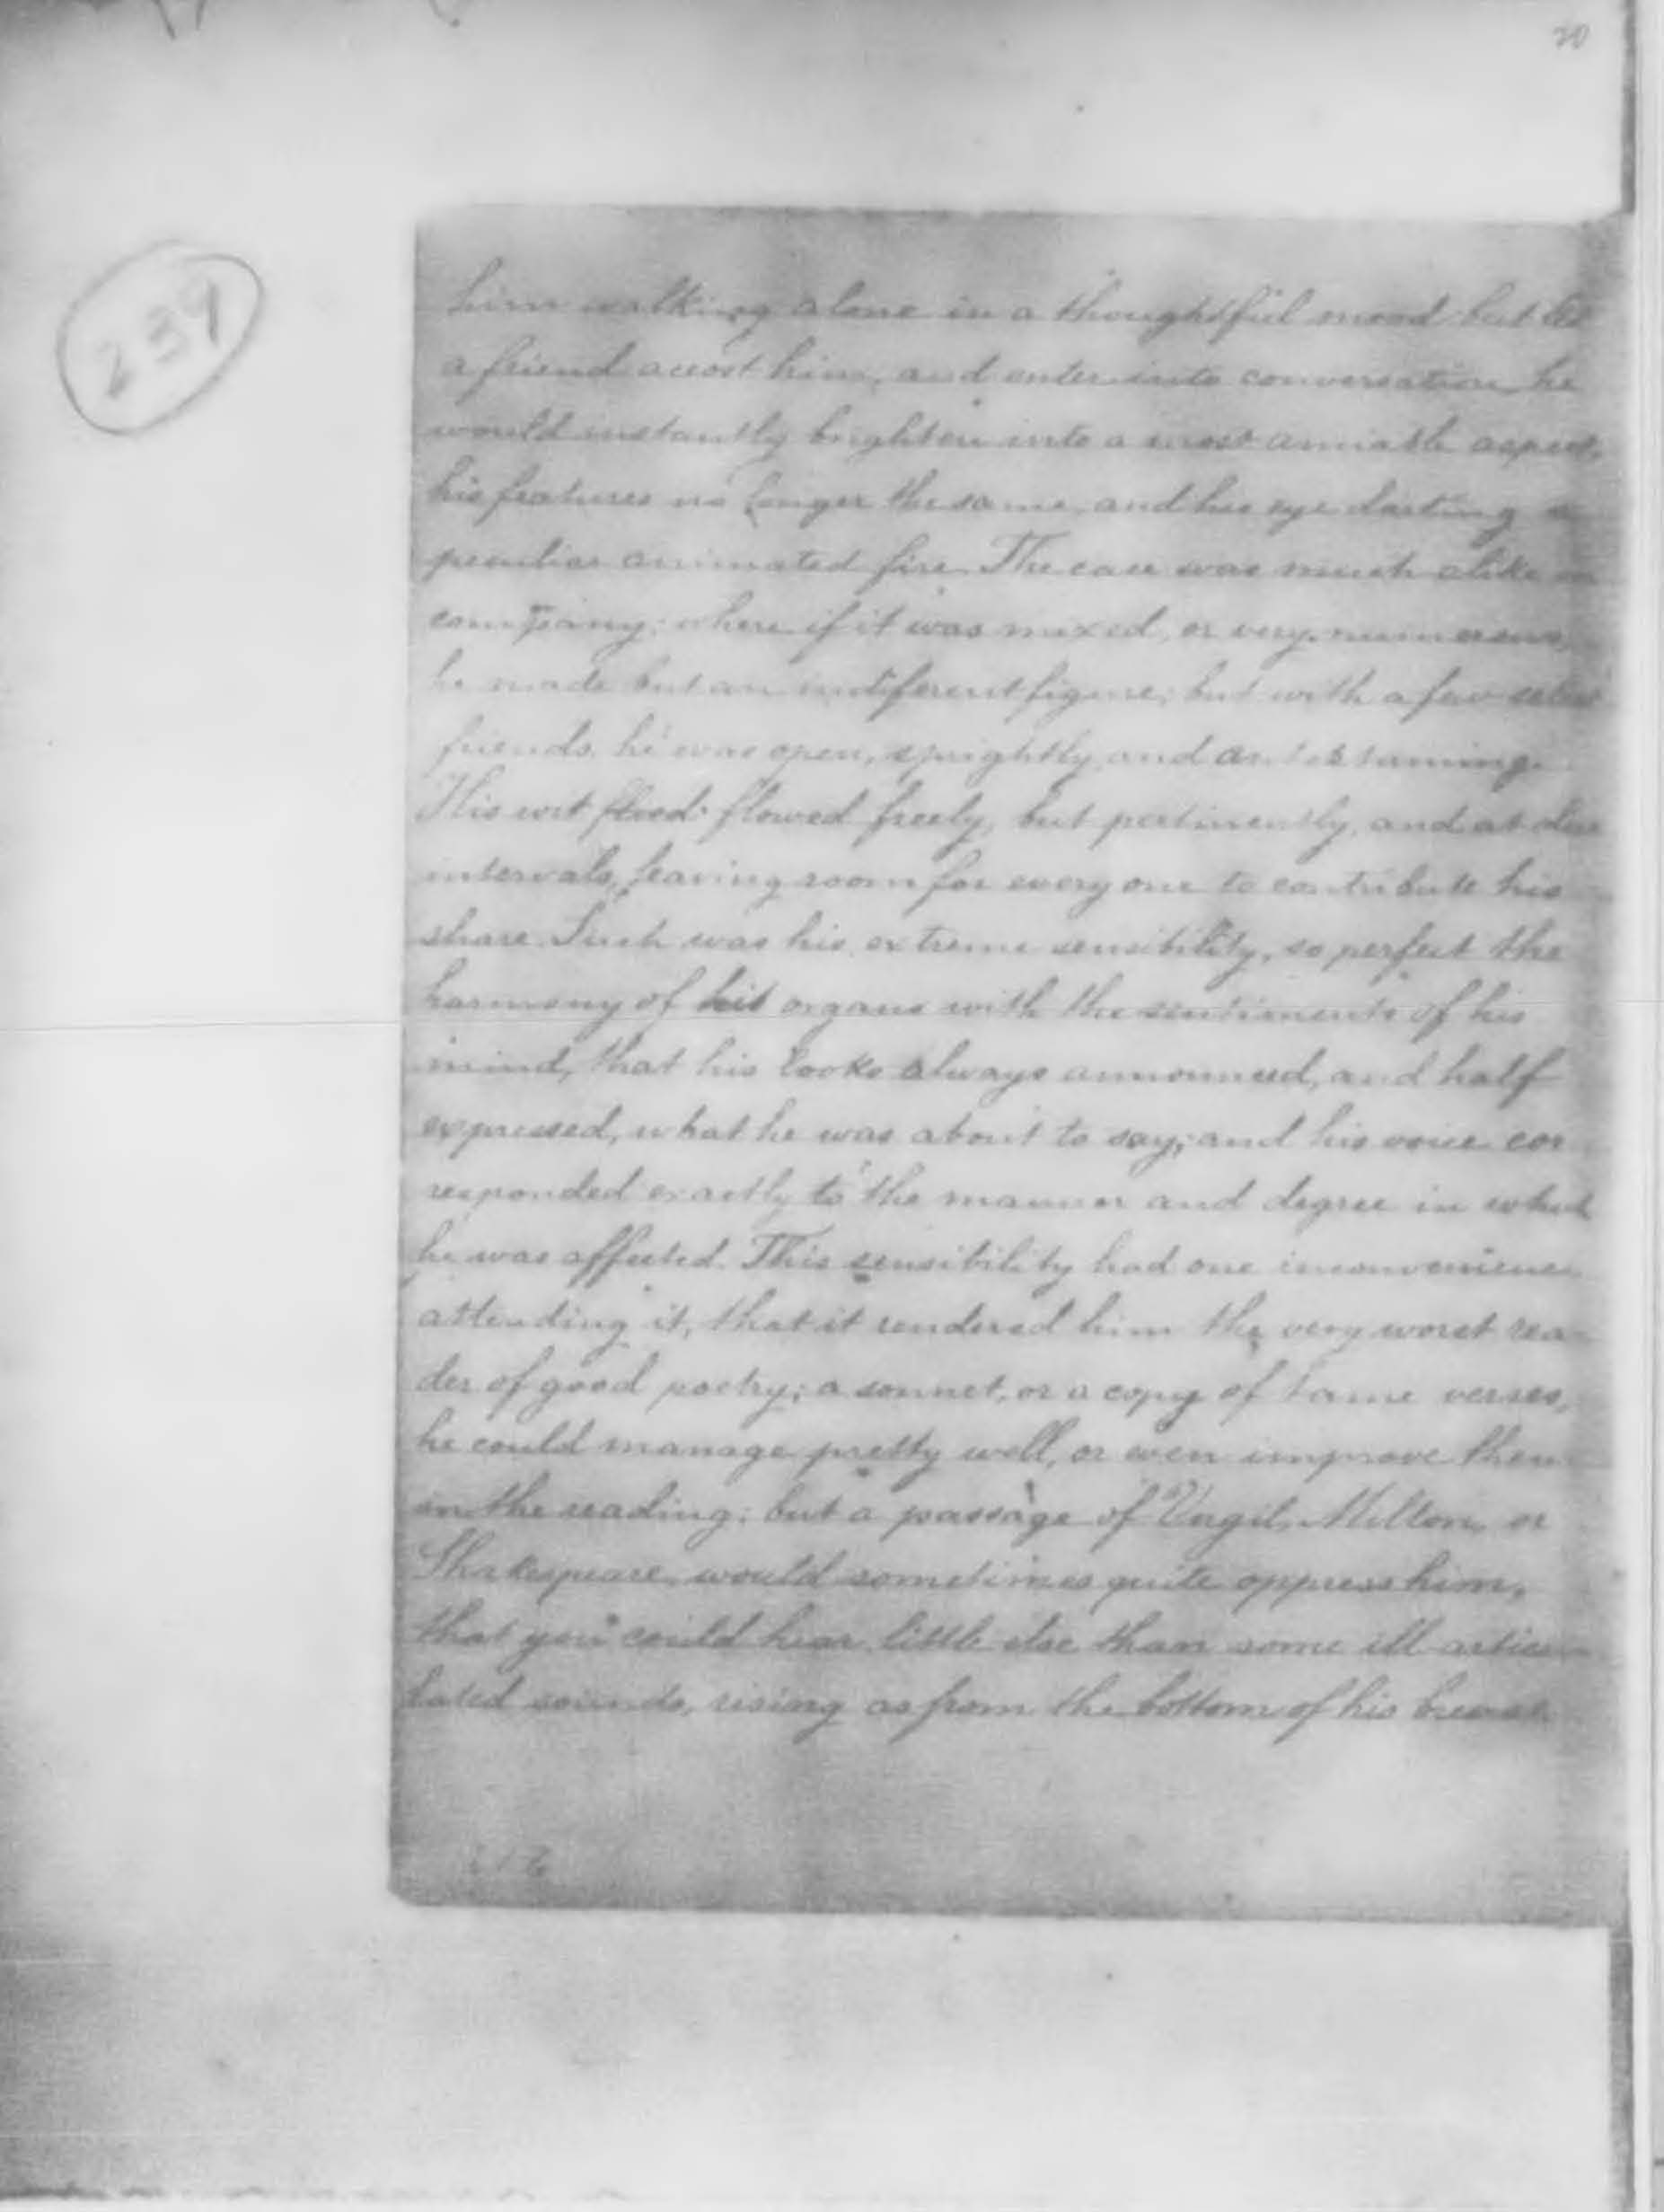 20
239
him walking alone in a thoughtful mood but let
a friend accost him, and enter into conversation he
would instantly brighten into a most amiable aspect,
his features no longer the same, and his eye darting a
peculiar animated fire. The case was much alike in
company; where if it was mixed, or very numerous,
he made but an indiferent figure; but with a few select
friends he was open, sprightly, and entertaining.
His wit flowed freely, but pertinently, and at due
intervals, leaving room for every one to contribute his
share. Such was his extreme sensibility, so perfect the
harmony of his organs with the sentiments of his
mind, that his looks always announced, and half
expressed, what he was about to say; and his voice cor
responded exactly to the manner and degree in which
he was affected. This sensibility had one inconvenience
attending it, that it rendered him the very worst rea-
der of good poetry; a sonnet, or a copy of tame verses,
he could manage pretty well, or even improve them
in the reading; but a passage of Virgil, Milton, or
Shakespeare, would sometimes quite oppress him,
that you could hear little else than some ill articu-
lated sounds, rising as from the bottom of his breast.